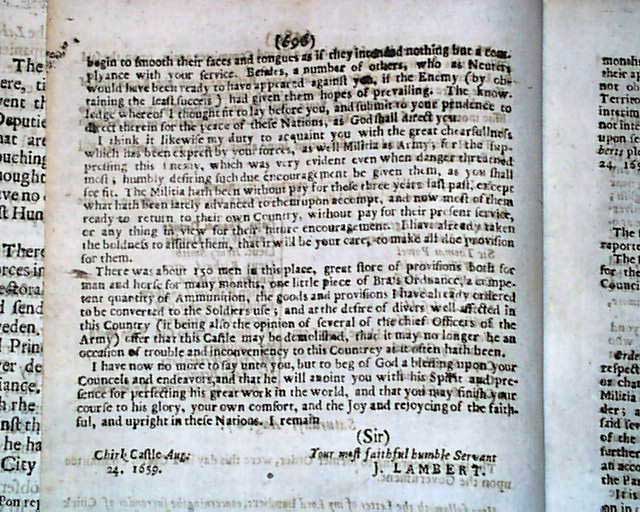 (696)
begin to smooth their faces and tongues as if they intended nothing but a com-
plyance with your service. Besides, a number of others, who as Neuters
would have been ready to have appeared against you, if the Enemy (by ob-
taining the least success) had given them hopes of prevailing. The know-
ledge whereof I thought fit to lay before you, and submit to your prudence to
direct therein for the peace of these Nations, as God shall direct you.
I think it likewise my duty to acquaint you with the great chearfullness
which has been exprest by your forces, as well Militia as Army, for the sup-
pressing this Enemy, which was very evident even when danger threatned
most; humbly desiring such due encouragement be given them, as you shall
see fit. The Militia hath been without pay for these three years last past, except
what hath been lately advanced to them upon accompt, and now most of them
ready to return to their own Country, without pay for their present service,
or any thing in view for their future encouragement. I have already taken
the boldness to assure them, that it will be your care, to make all due provision
for them.
There was about 150 men in this place, great store of provisions both for
man and horse for many months, one little piece of Brass Ordnance, a compe-
tent quantity of Ammunition, the goods and provisions I have already ordered
to be converted to the Soldiers use; and at the desire of divers well affected in
this Country (it being also the opinion of several of the chief Officers of the
Army) offer that this Castle may be demolished, that it may no longer be an
occasion of trouble and inconveniency to this Countrey as it often hath been.
I have now no more to say unto you, but to beg of God a blessing upon your
Councels and endeavors, and that he will anoint you with his Spirit and pre-
sence for perfecting his great work in the world, and that you may finish your
course to his glory, your own comfort, and the Joy and rejoycing of the faith-
ful, and upright in these Nations. I remain
(Sir)
Chirk Castle Aug: Your most faithful humble Servant
24. 1659. J. LAMBERT.